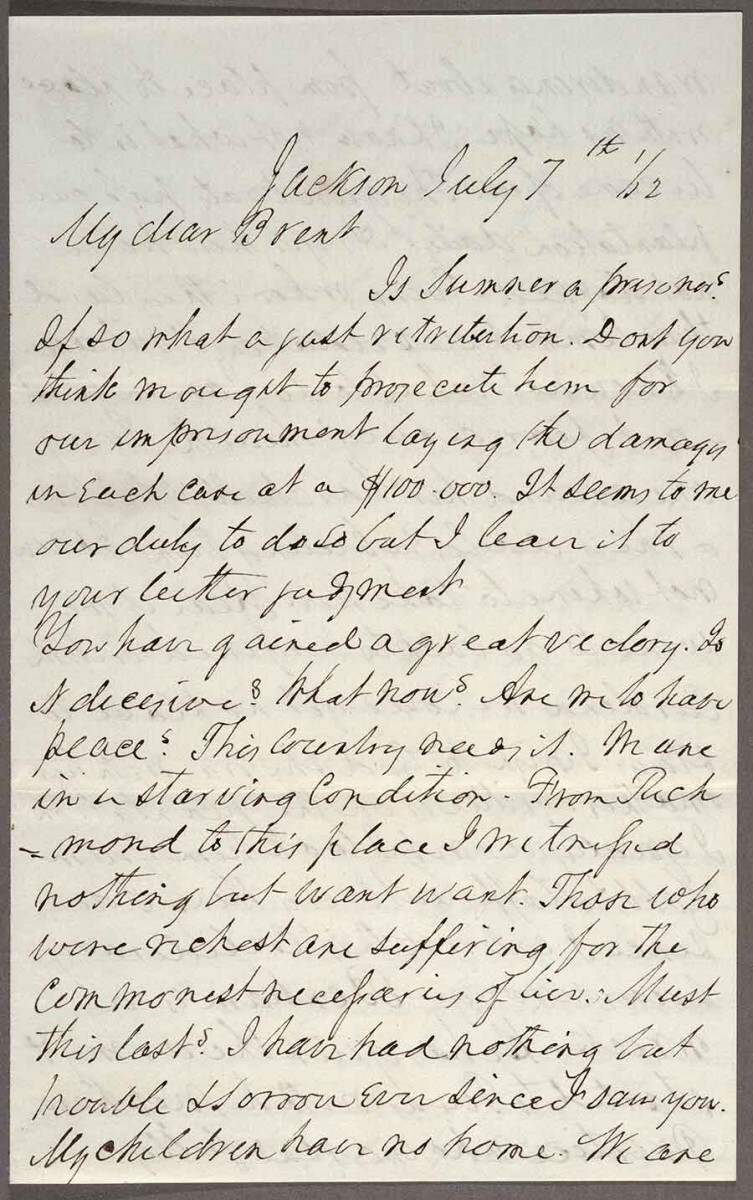 Jackson July 7th /62
My dear Brent
Is Sumner a prisoner?
If so what a just retribution. Dont you
think we ought to prosecute him for
our imprisonment laying the damages
in each case at a $100.000. It seems to me
our duty to do so but I leave it to
your better judgment
You have gained a great victory. Is
it decisive? What now? Are we to have
peace? This Country needs it. We are
in a starving Condition. From Rich
= mond to this place I witnessed
nothing but want want. Those who
were richest are suffering for the
Commonest necessaries of live. Must
this last? I have had nothing but
trouble & sorrow ever since I saw you.
My children have no home. We are